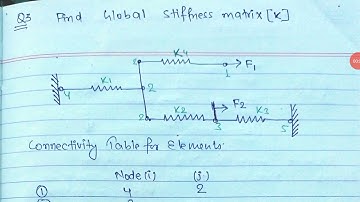 Q3 Find Global stiffness matrix [K]
K4
1 → F1
K1
4 2
K2 → F2 K3
2 3 5
Connectivity Table for Elements.
Node(i) (j)
① 4 2